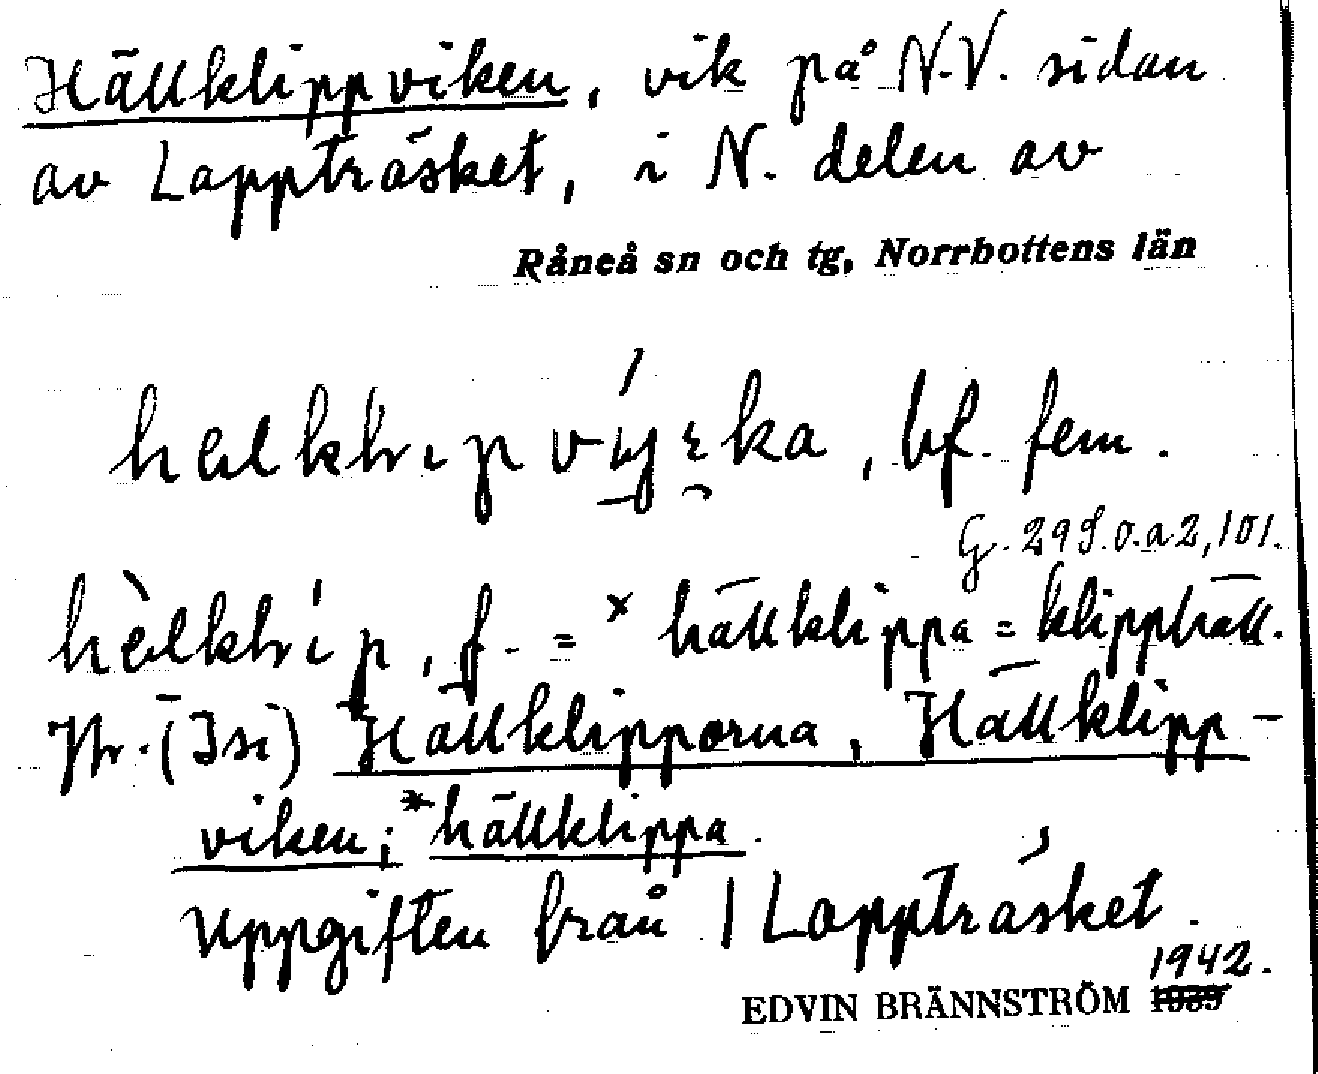 Hällklippviken, vik på N.V. sidan
av Lappträsket, i N. delen av
Råneå sn och tg, Norrbottens län
bf. fem.
G. 29 S.o.a.2,101.
f. = * hällklippa = klipphäll.
Jfr. (Isi) Hällklipporna, Hällklipp-
viken; *hällklippa.
Uppgiften från 1 Lappträsket.
1942.
EDVIN BRÄNNSTRÖM 1939